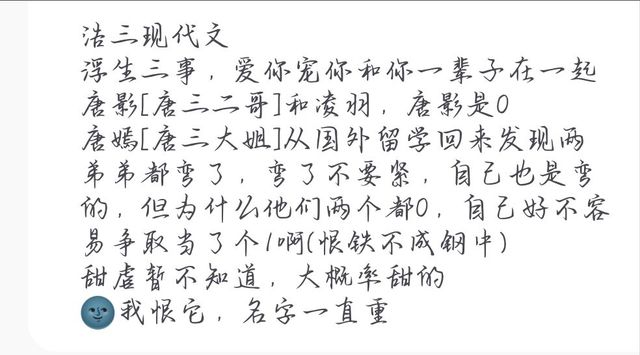 浩三现代文
浮生三事，爱你宠你和你一辈子在一起
唐影[唐三二哥]和凌羽，唐影是0
唐嫣[唐三大姐]从国外留学回来发现两
弟弟都弯了，弯了不要紧，自己也是弯
的，但为什么他们两个都0，自己好不容
易争取当了个1啊(恨铁不成钢中)
甜虐暂不知道，大概率甜的
🌚我恨它，名字一直重